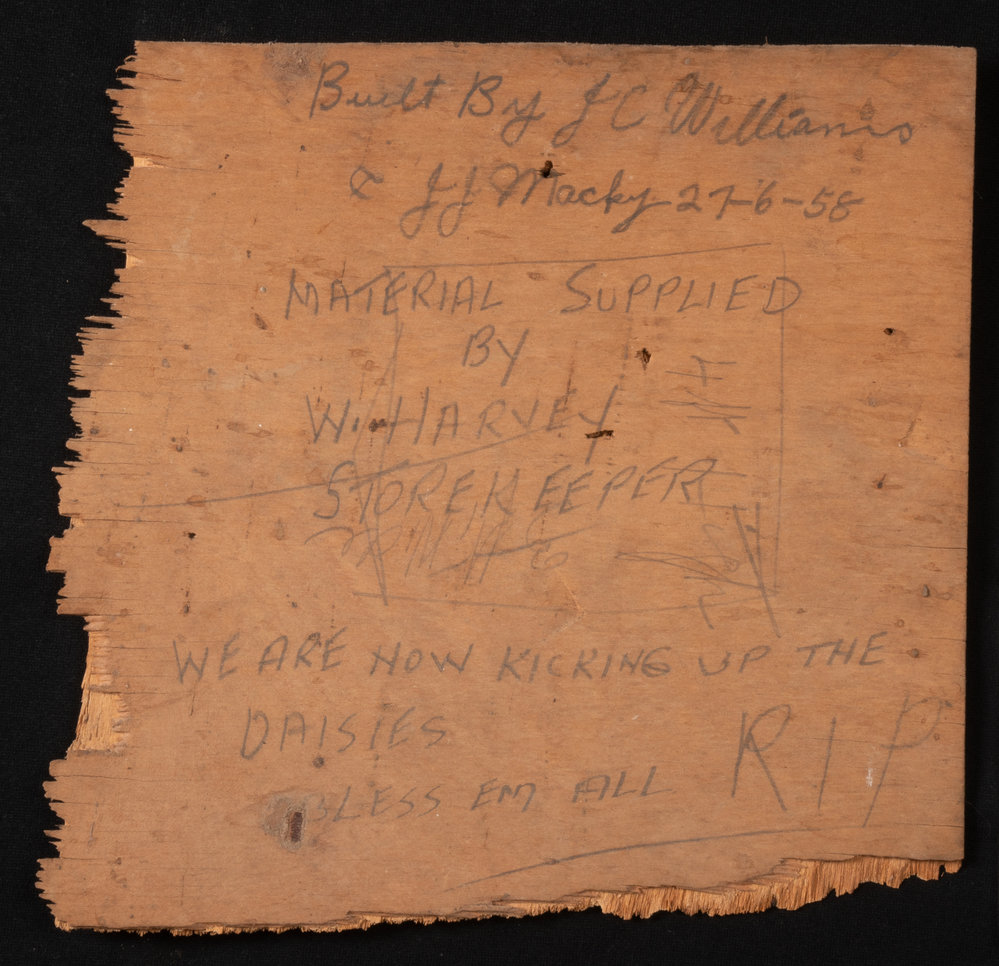 Built By J C Williams
& J J Macky 27-6-58
MATERIAL SUPPLIED
BY
W. HARVEY
STOREKEEPER
WE ARE NOW KICKING UP THE
DAISIES
BLESS EM ALL
RIP